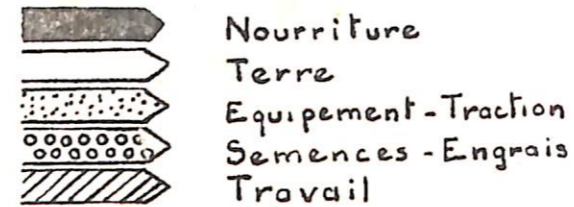 Nourriture
Terre
Equipement-Traction
Semences-Engrais
Travail